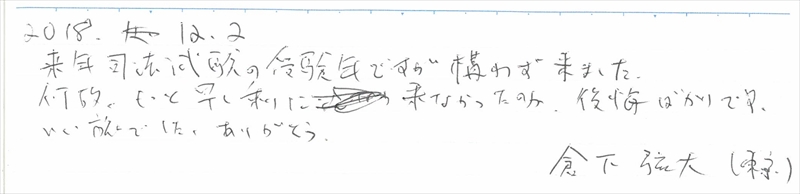 2018. 12. 2
来年司法試験の受験年ですが構わず来ました。
何故、もっと早く来なかったのか、後悔ばかりです。
いい旅でした。ありがとう。
倉下 弦大 (東京)